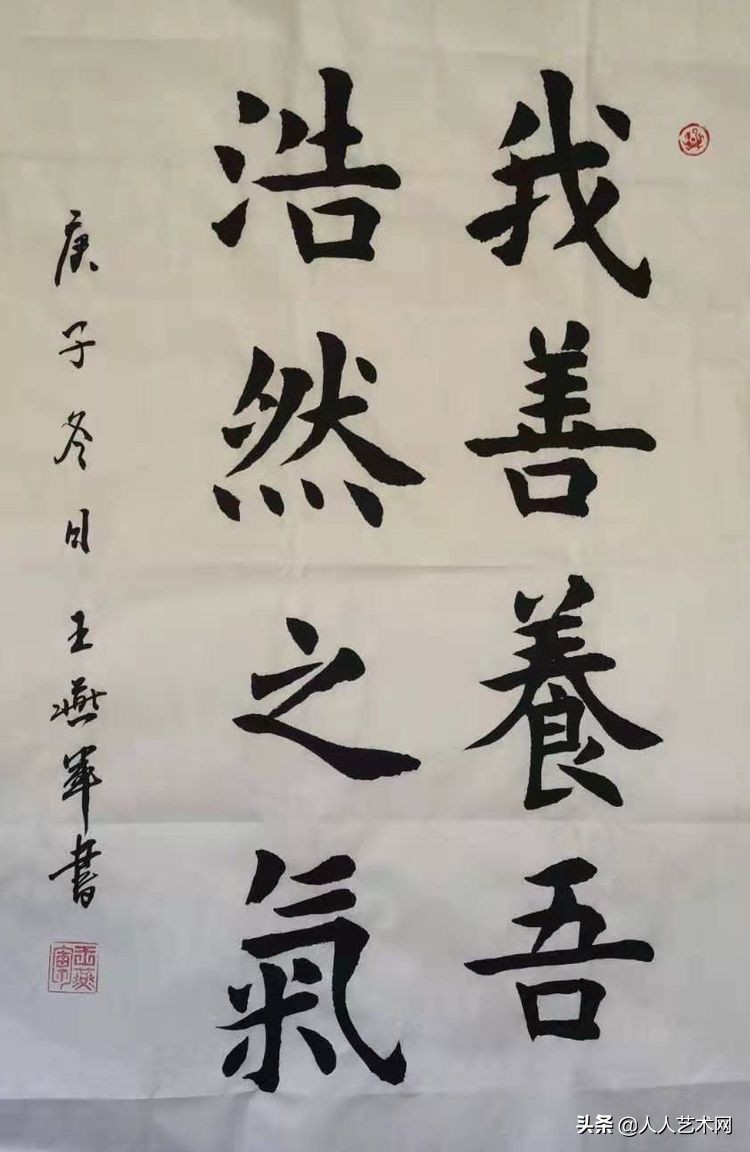 我善養吾
浩然之氣
庚子冬月王燕軍書
头条 @人人艺术网